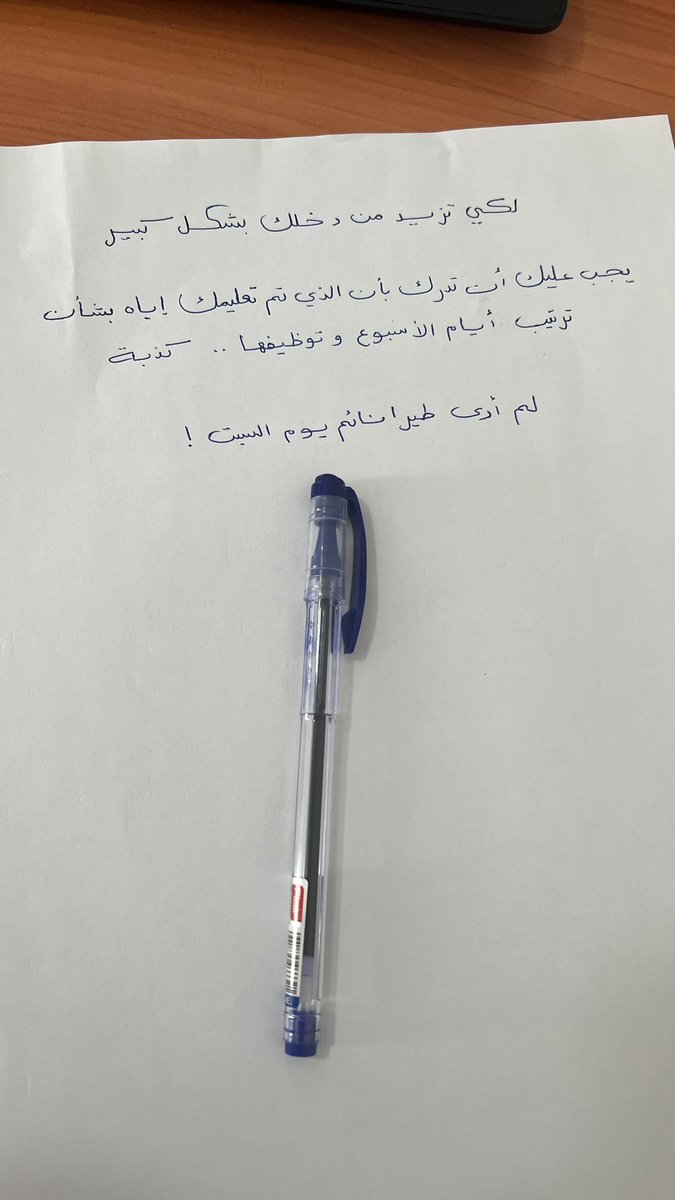 لكي تزيد من دخلك بشكل كبير
يجب عليك أن تدرك بأن الذي تم تعليمك إياه بشأن
ترتيب أيام الأسبوع و توظيفها .. كذبة
لم أرى طيرا نائم يوم السبت !